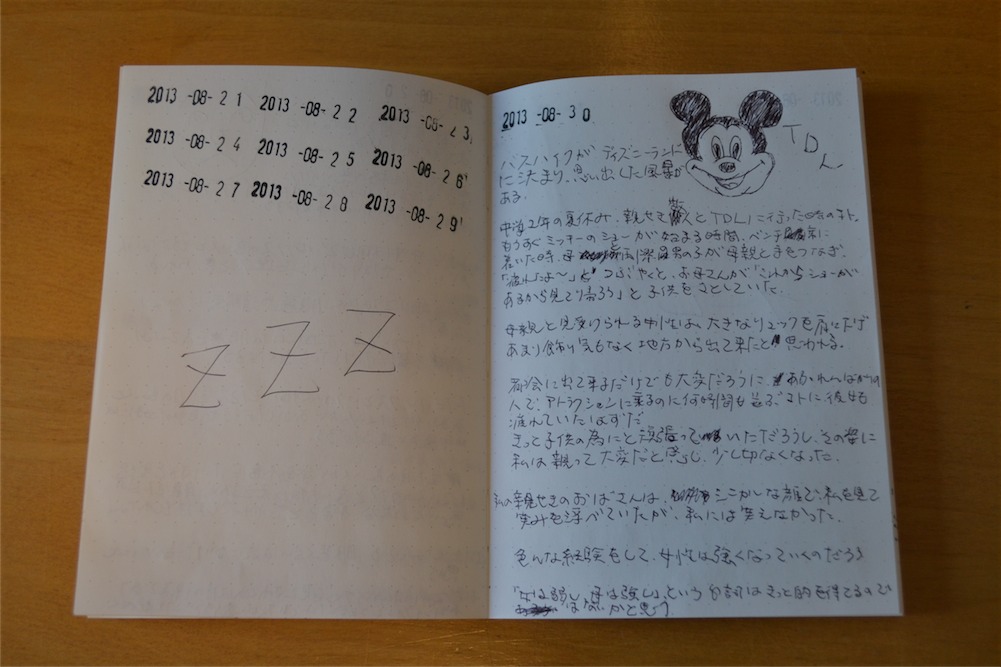 2013 -08- 2 1 2013 -08- 2 2 2013 -08- 2 3
2013 -08- 2 4 2013 -08- 2 5 2013 -08- 2 6
2013 -08- 2 7 2013 -08- 2 8 2013 -08- 2 9
Z Z Z
2013 -08- 3 0
TDL
バスハイクが ディズニーランド
に決まり、思い出した風景が
ある.
中学2年の夏休み、親せき とTDLに行った時のコト.
もうすぐミッキーのショーが始まる時間、ベンチ
着いた時、 男の子が母親と手をつなぎ
「疲れたよ〜」と つぶやくと、お母さんが「これからショーが
あるから見て帰ろう」と子供をさとしていた.
母親と見受けられる女性は、大きなリュックを肩に下げ
あまり飾り気もなく地方から出て来たと思われる.
都会に出て来るだけでも大変だろうに、あふれんばかりの
人で、アトラクションに乗るのに何時間も並ぶコトに彼女も
疲れていたはずだ
きっと子供の為にと頑張っていただろうし、その姿に
私は親って大変だと感じ、少し切なくなった.
私の親せきのおばさんは、シニカルな顔で、私を見て
笑みを浮べていたが、私には笑えなかった.
色んな経験をして、女性は強くなっていくのだろう
「女は弱し、母は強し」という台詞はきっと的を得てるので
はないかと思う.